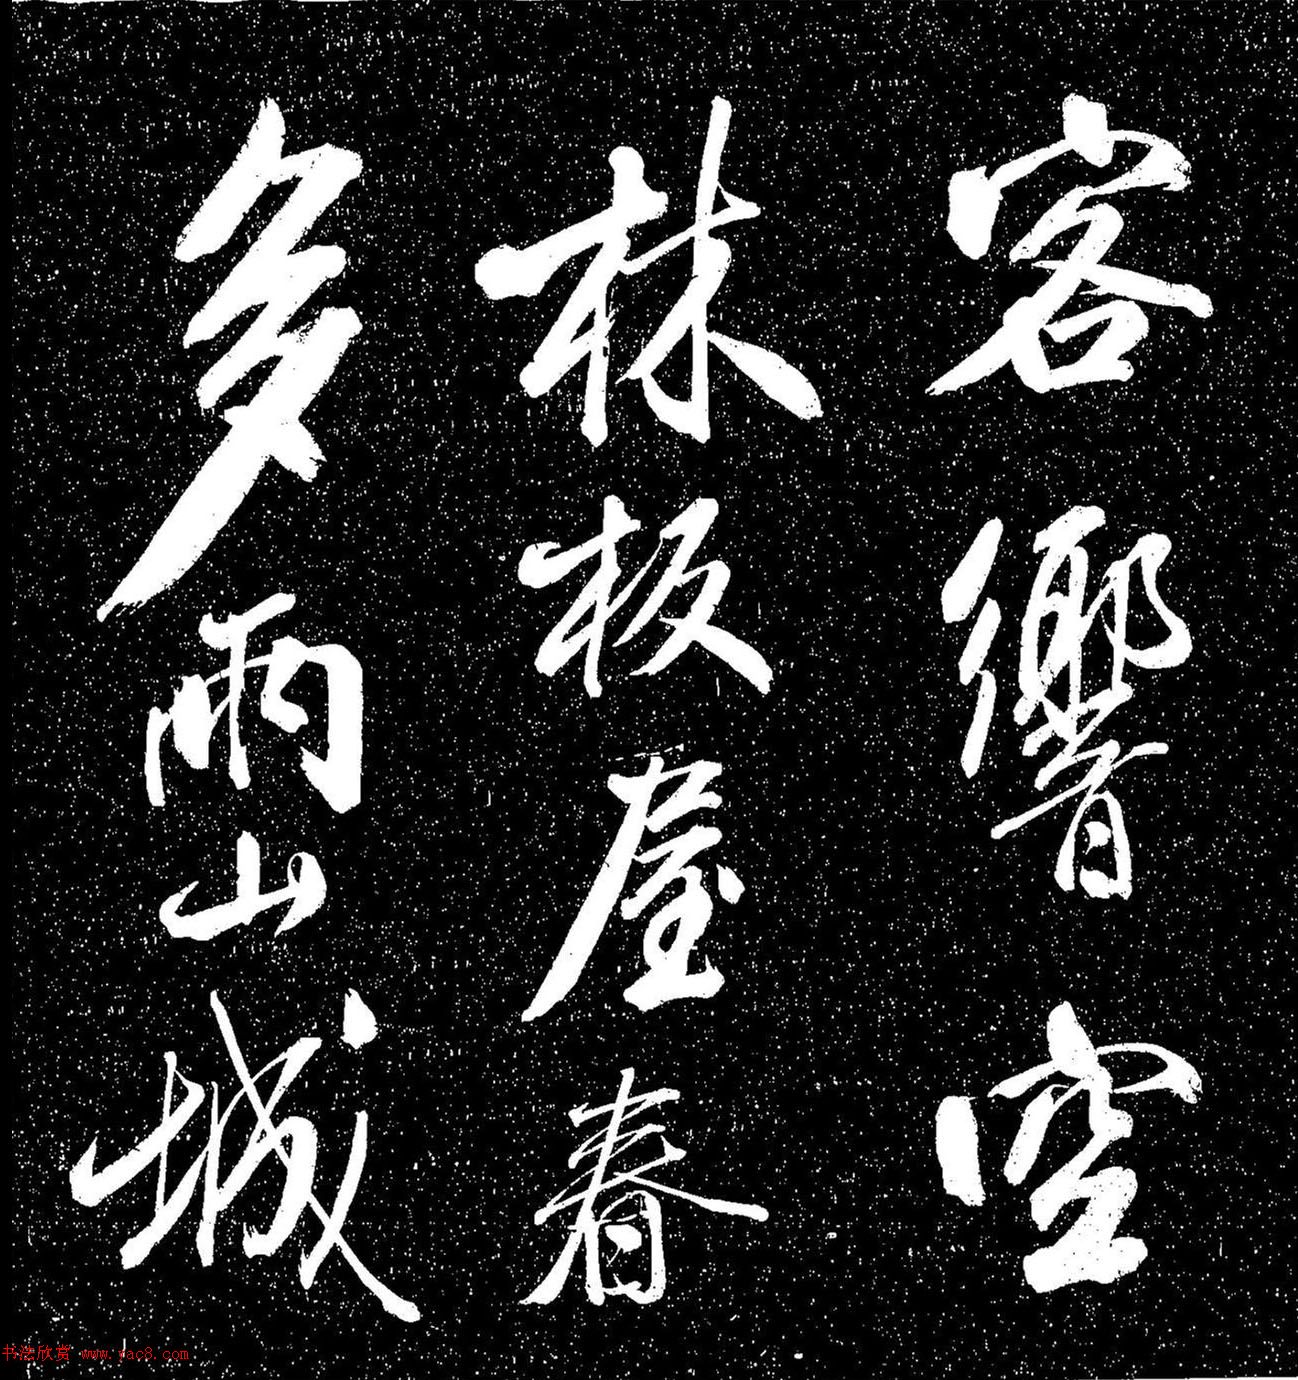 客響空
林板屋春
多雨山城
书法欣赏 www.yac8.com